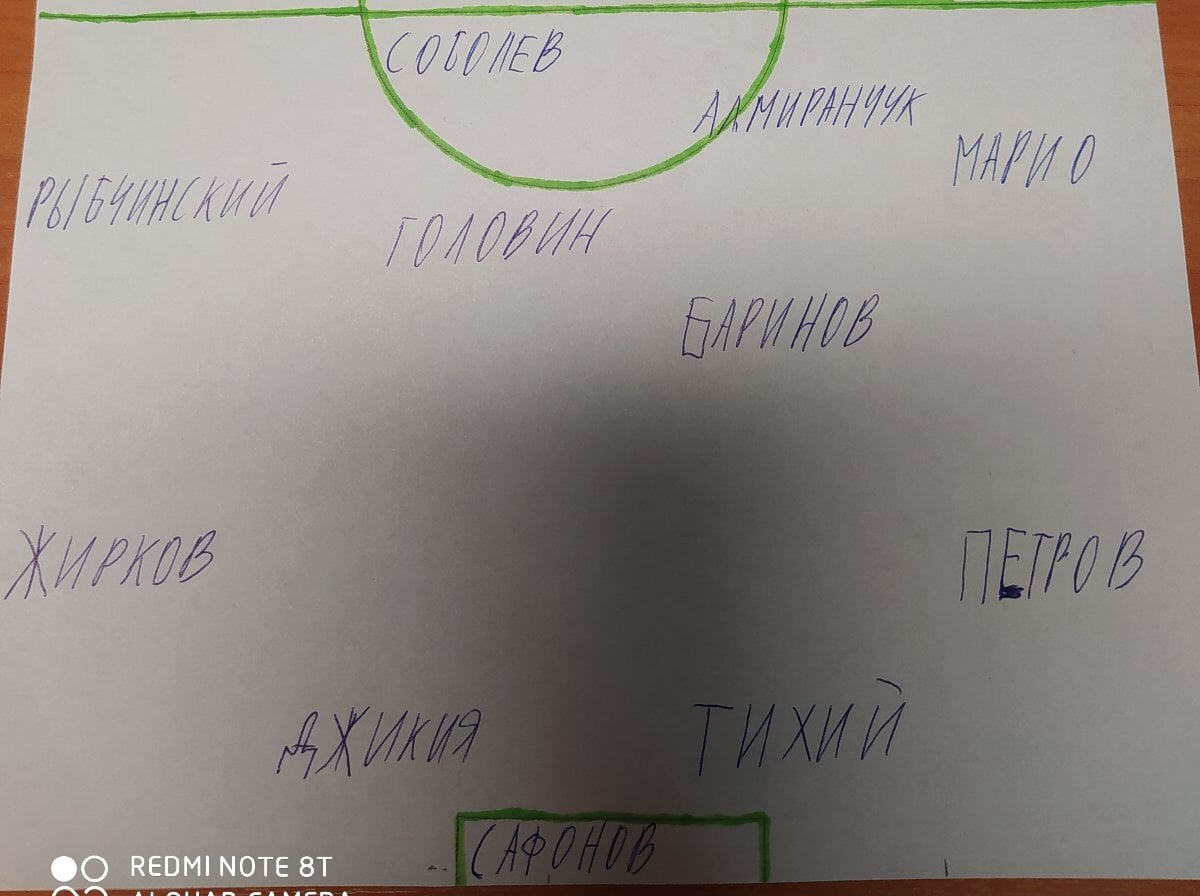 СОБОЛЕВ
АЛМИРАНЧУК
МАРИО
РЫБЧИНСКИЙ
ГОЛОВИН
БАРИНОВ
ЖИРКОВ
ПЕТРОВ
ДЖИКИЯ
ТИХИЙ
САФОНОВ
REDMI NOTE 8T
AI QUAD CAMERA